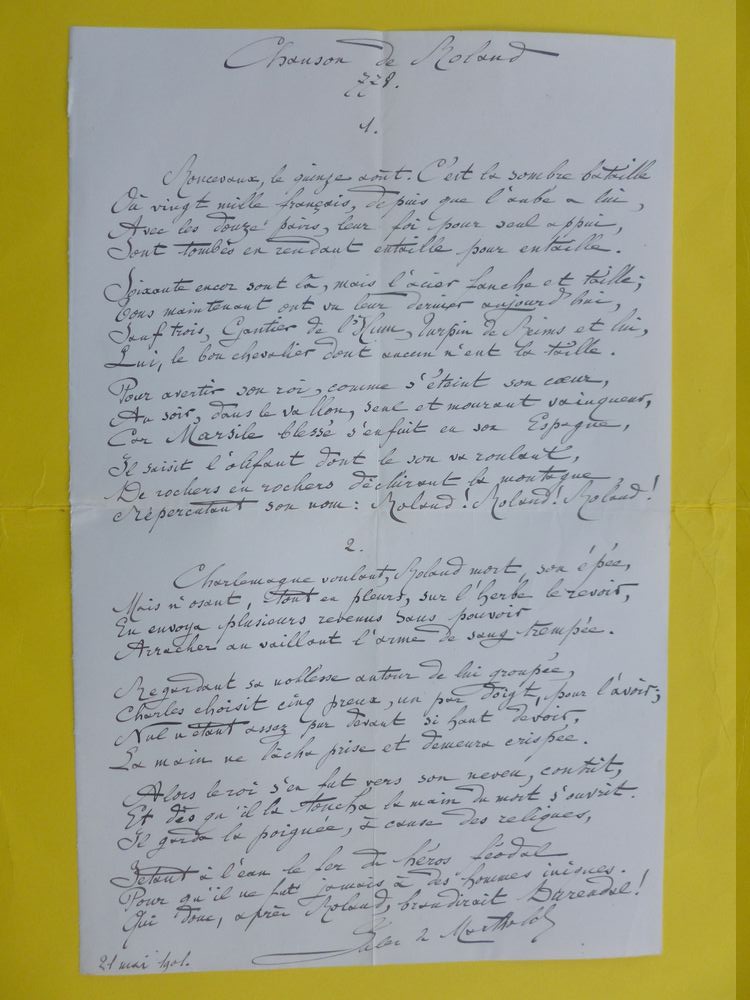 Chanson de Roland
778.
1.
Roncevaux, le quinze août. C'est la sombre bataille
Où vingt mille français, depuis que l'aube a lui,
Avec les douze pairs, leur foi pour seul appui,
Sont tombés en rendant entaille pour entaille.
Soixante encor sont là, mais l'acier tanche et taille;
Tous maintenant ont vu leur dernier aujourd'hui,
Sauf trois, Gautier de l'Hum, Turpin de Reims et lui,
Lui, le bon chevalier dont aucun n'eut la taille.
Pour avertir son roi, comme s'éteint son cœur,
Au soir, dans le vallon, seul et mourant vainqueur,
Car Marsile blessé s'enfuit en son Espagne,
Il saisit l'olifant dont le son va roulant,
De rochers en rochers déchirant la montagne,
Répercutant son nom : Roland! Roland! Roland!
2.
Charlemagne voulant, Roland mort, son épée,
Mais n'osant, tout en pleurs, sur l'herbe le revoir,
En envoya plusieurs revenus sans pouvoir
Arracher au vaillant l'arme de sang trempée.
Regardant sa noblesse autour de lui groupée,
Charles choisit cinq preux, un par doigt, pour l'avoir;
Nul n'étant assez pur devant si haut devoir,
La main ne lâcha prise et demeura crispée.
Alors le roi s'en fut vers son neveu, contrit,
Et dès qu'il la toucha la main du mort s'ouvrit.
Il garda la poignée, à cause des reliques,
Jetant à l'eau le fer du héros féodal
Pour qu'il ne fut jamais à des hommes iniques.
Qui donc, après Roland, brandirait Durendal!
Jules de Marthold
21 mai 1901.